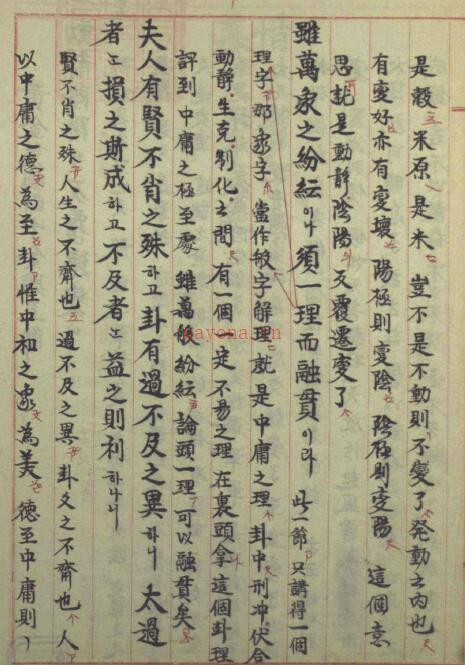 是穀 米原是米 豈不是不動則不變了 発動之內也
有變好亦有變壞 陽極則變陰 陰極則變陽 這個意
思説是動靜陰陽 反覆遷變了
雖萬象之紛紜이나 須一理而融貫이라 此一節 只講得一個
理字 那象字 當作般字解 理就是中庸之理 卦中刑冲伏合
動靜 生克制化之間 有一個一定不易之理在裏頭 拿這個卦理
評到中庸之極至處 雖萬般紛紜 論頭一理可以融貫矣
夫人有賢不肖之殊하고 卦有過不及之異하니 太過
者는損之斯成하고 不及者는益之則利하나니
賢不肖之殊 人生之不齊也 過不及之異 卦爻之不齊也 人
以中庸之德為至 卦惟中和之象為美 德至中庸則